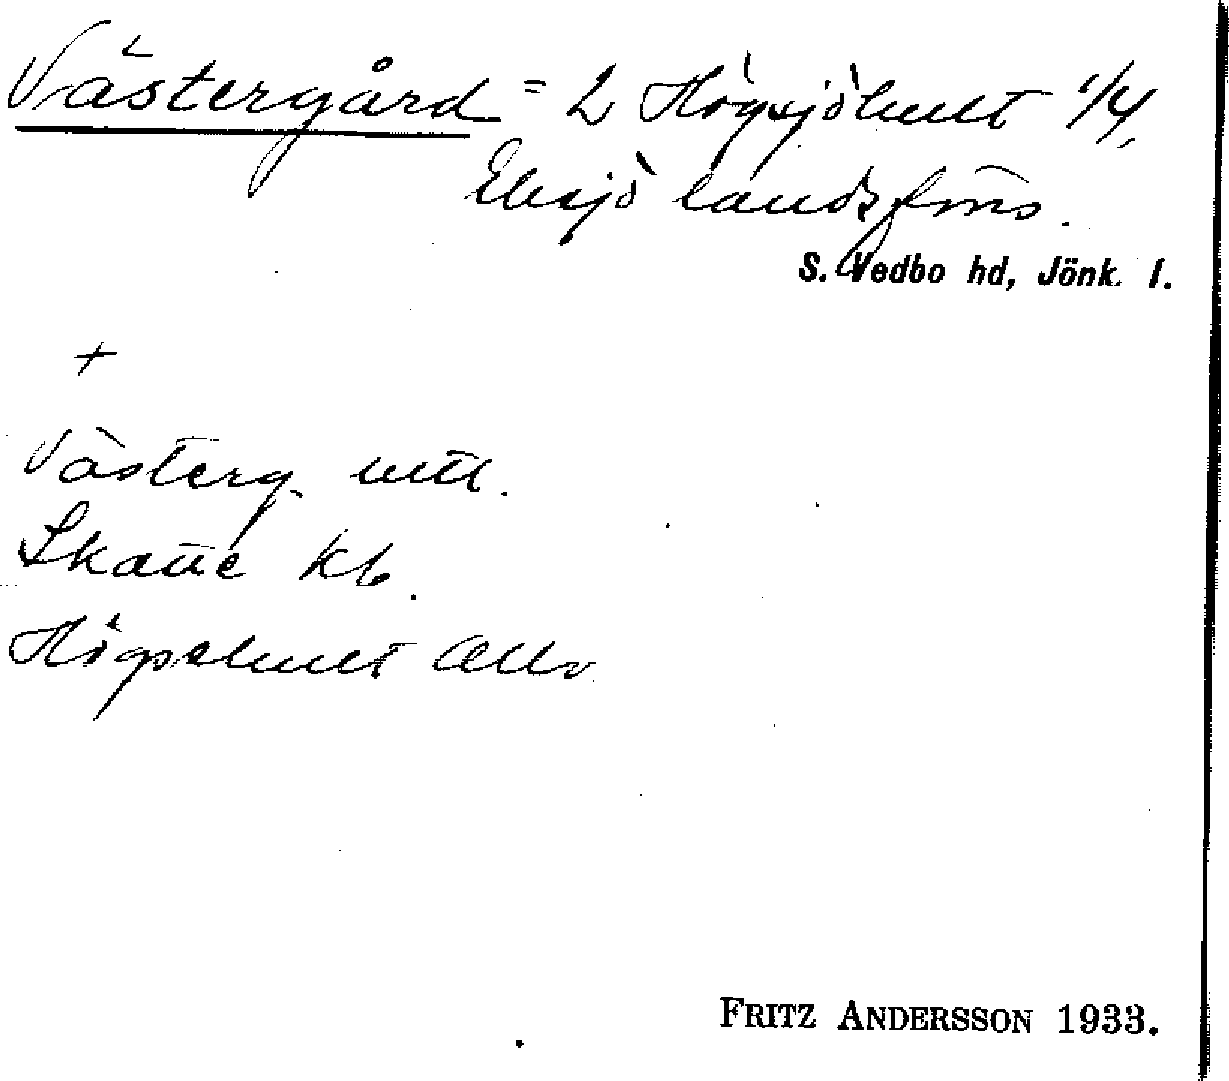 Västergård = 2 Högsjöhult 1/4,
Eksjö landsförs.
S. Vedbo hd, Jönk. l.
+
Västerg. utt.
Skatte kb.
Högsehult
FRITZ ANDERSSON 1933.